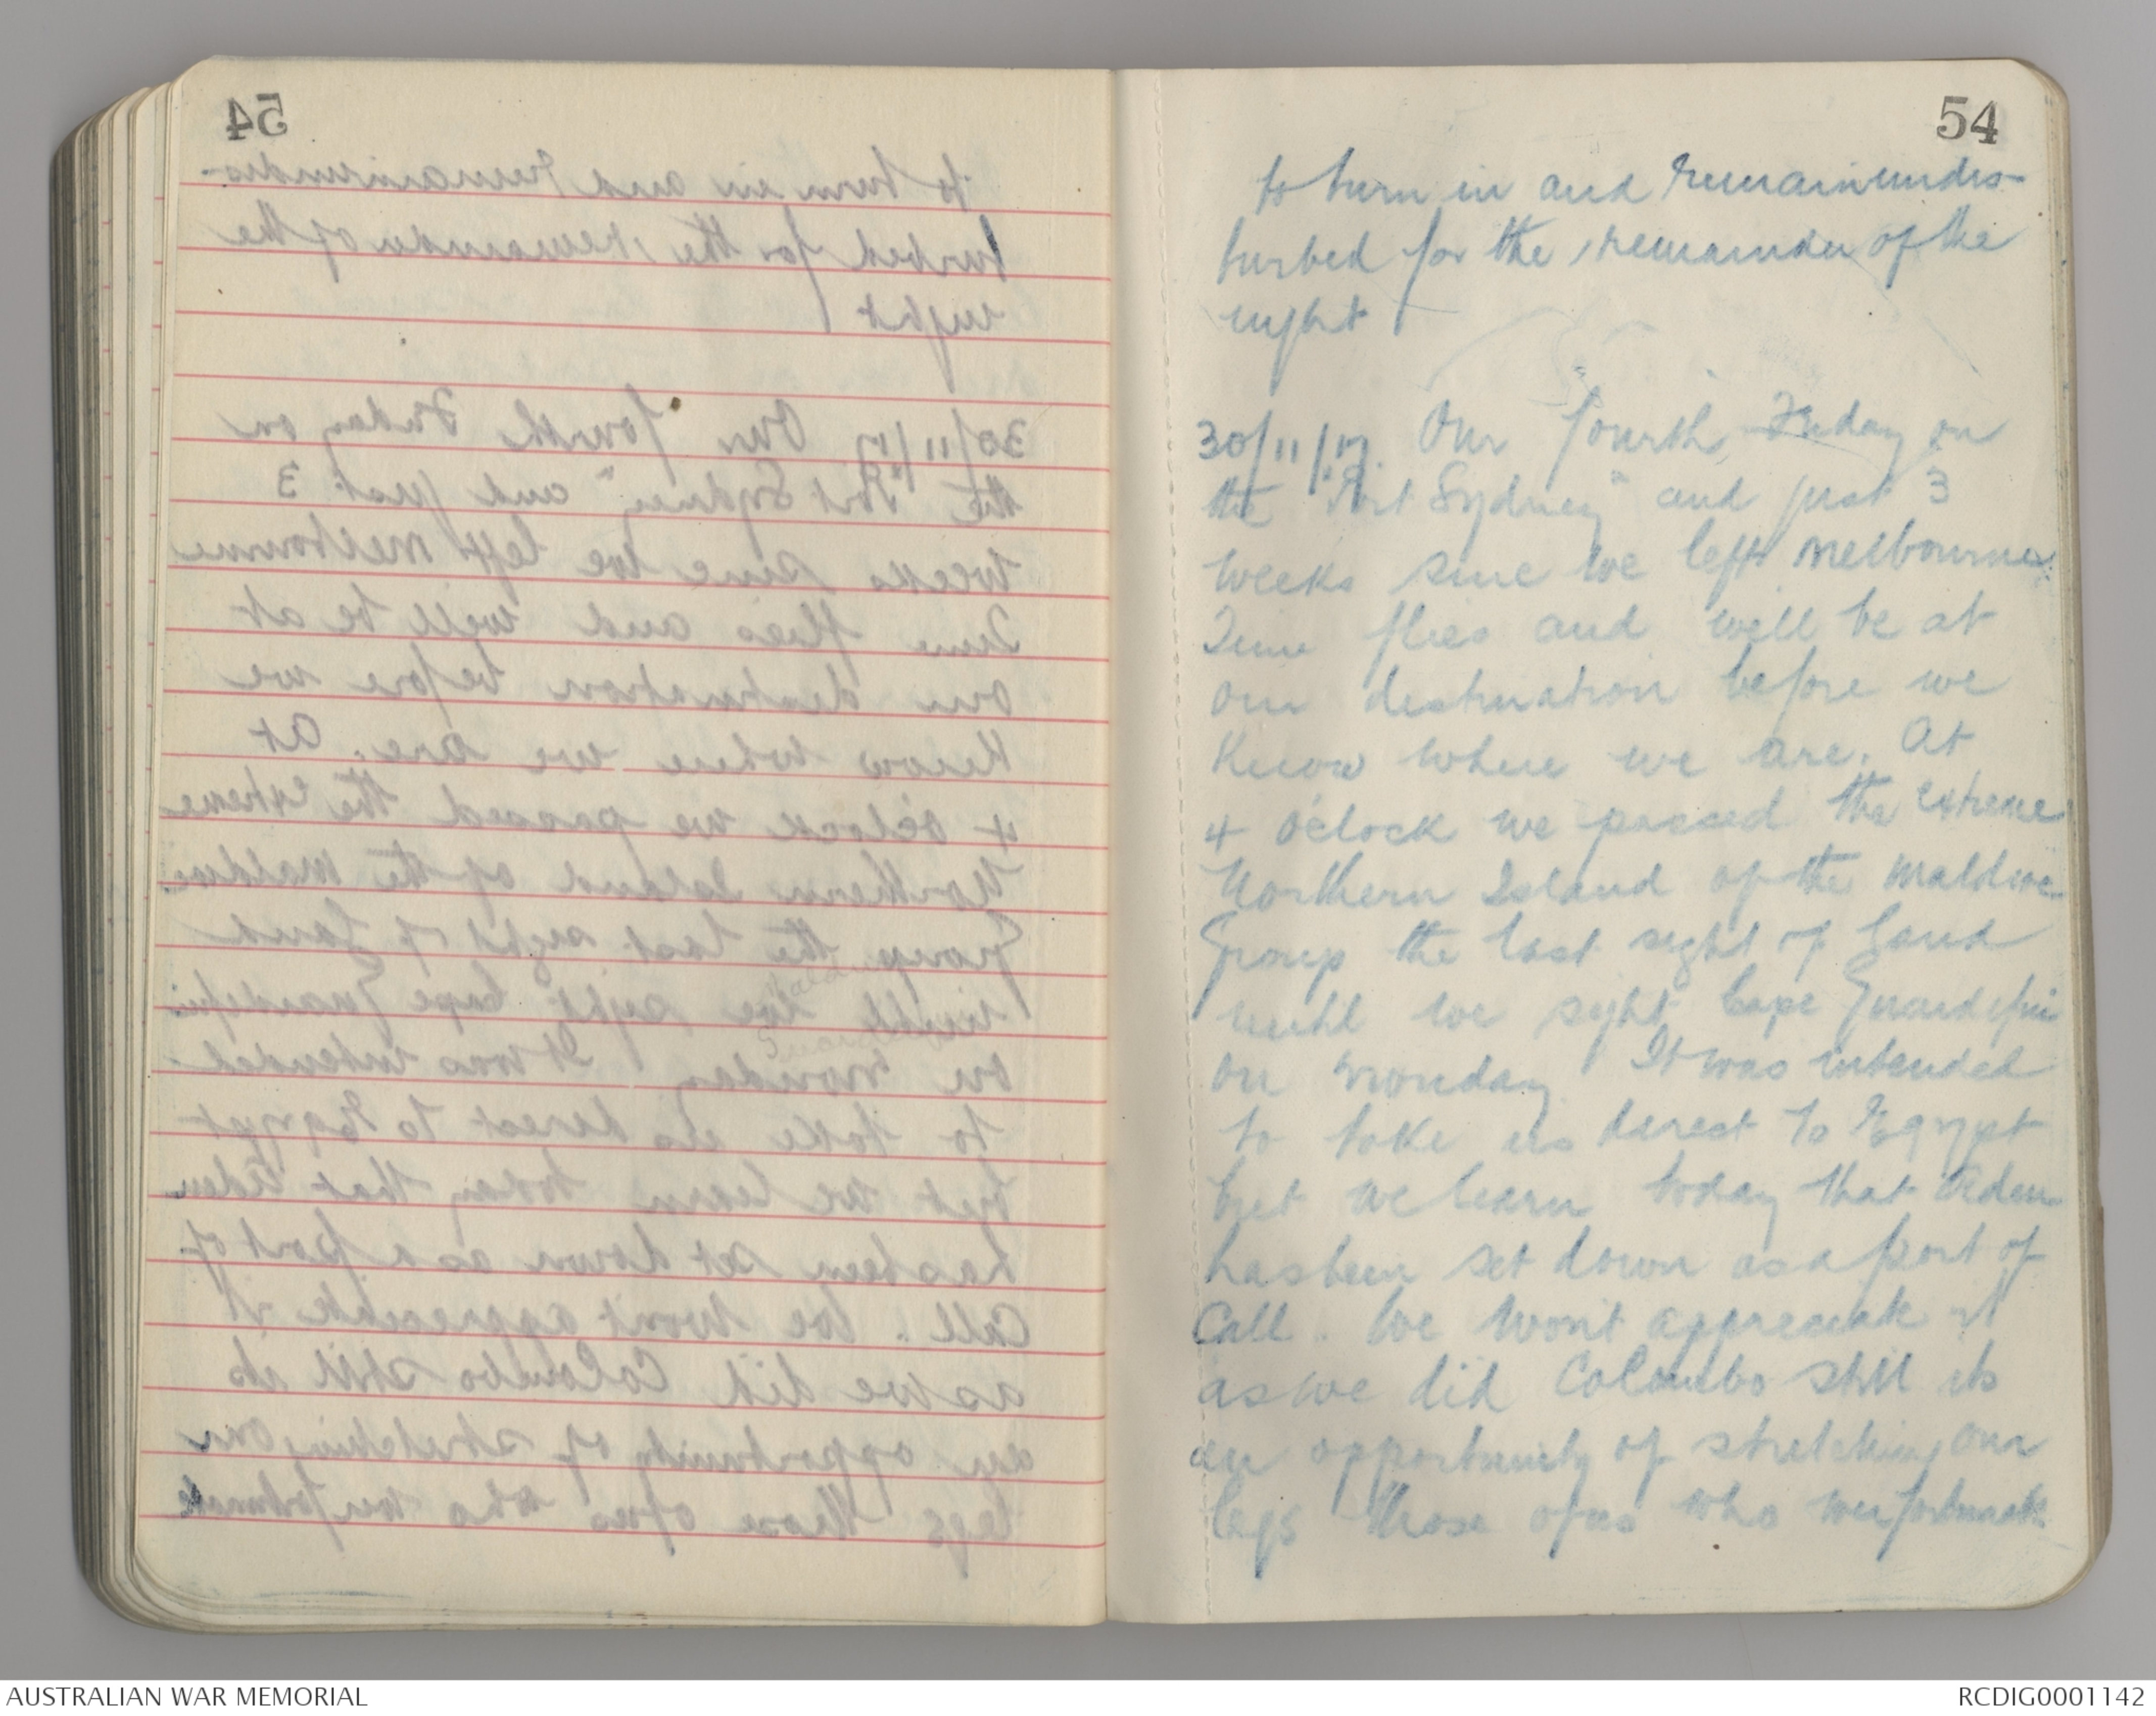 54
to turn in and remain undis-
turbed for the remainder of the
night
30/11/17. Our fourth Friday on
the "Port Sydney" and just 3
weeks since we left Melbourne.
Time flies and will be at
our destination before we
know where we are. At
4 o'clock we passed the extreme
Northern Island of the Maldive
Group the last sight of land
until we sight Cape Guardefui
on Monday It was intended
to take us direct to Egypt
but we learn today that Aden
has been set down as a port of
Call.. We won't appreciate it
as we did Colombo still its
an opportunity of stretching our
legs those of us who
AUSTRALIAN WAR MEMORIAL
RCDIG0001142